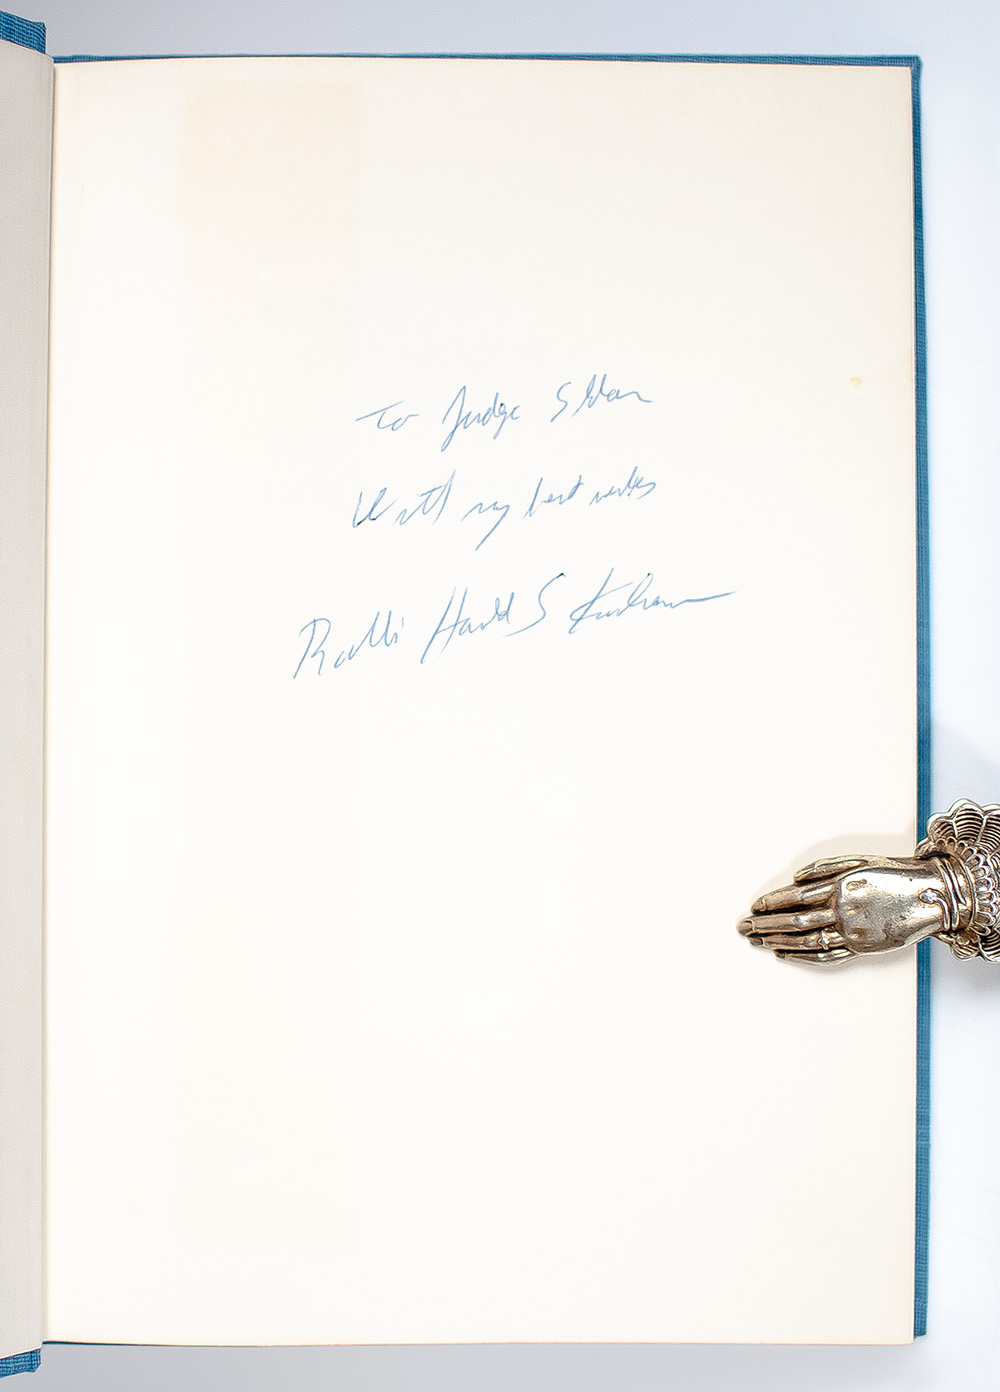 To Judge
With my best wishes
Rabbi Harold S Kushner